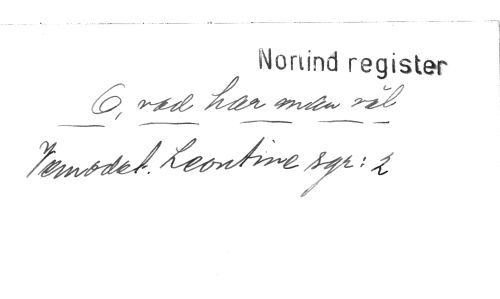 Norlind register
O, vad har man väl
Vemodet. Leontine sgr: 2